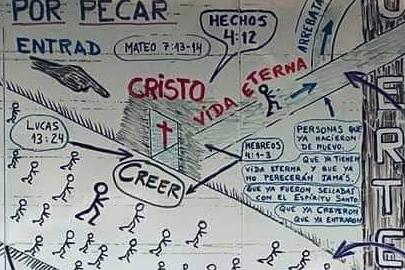 POR PECAR
HECHOS
4:12
ENTRAD
MATEO 7:13-14
ARREBATA
CRISTO
VIDA ETERNA
LUCAS
13:24
HEBREOS
4:1-3
CREER
PERSONAS QUE
YA HACIERON
DE NUEVO.
QUE YA TIENEN
VIDA ETERNA Y QUE YA
NO PERECERÁN JAMÁS.
QUE YA FUERON SELLADAS
CON EL ESPÍRITU SANTO.
QUE YA CREYERON
QUE YA ENTRARON
UERTE